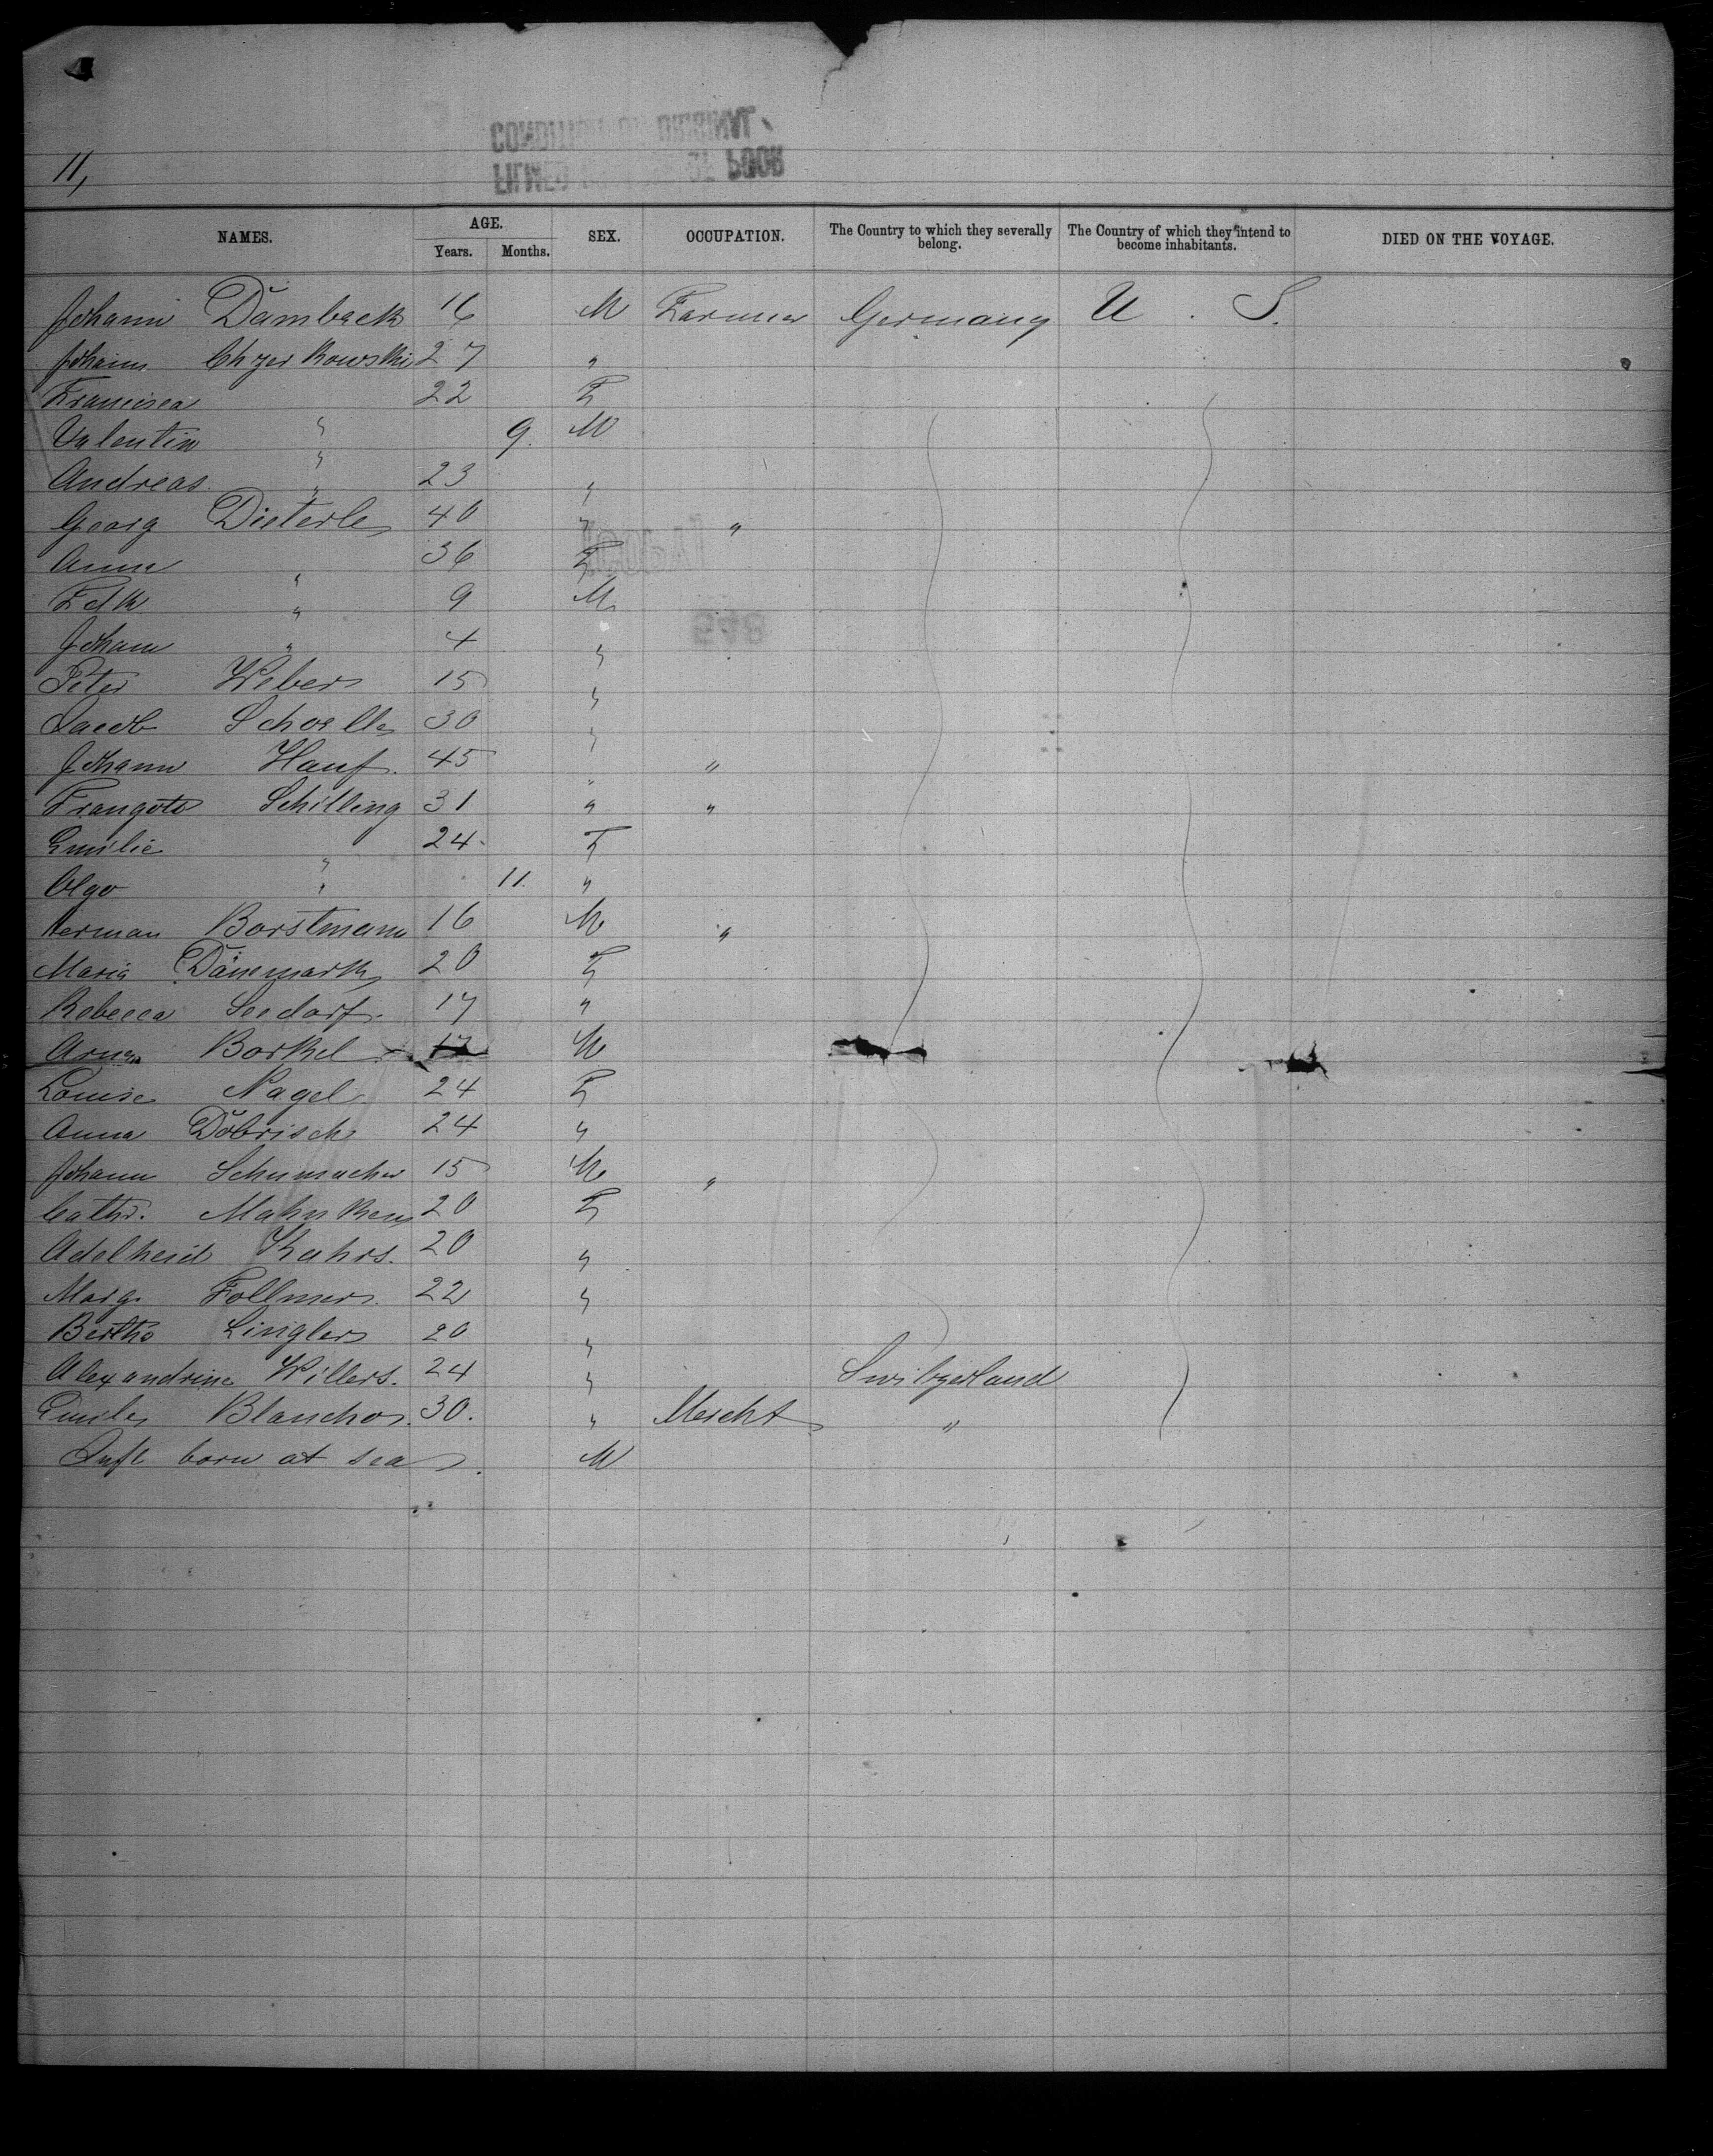 11,
NAMES. AGE. SEX. OCCUPATION. The Country to which they severally belong. The Country of which they intend to become inhabitants. DIED ON THE VOYAGE.
Years. Months.
Johann Dambach 16 M Farmer Germany U. S.
Johann Chzerkowski 27 "
Francisca 22 F
Valentin " 9. M
Andreas " 23 "
Georg Dieterle 40 " "
Anna " 36 F
Fdk " 9 M
Johann " 4 "
Peter Weber 15 "
Jacob 30 "
Johann Hauf. 45 " "
Schilling 31 " "
Emilie " 24 F
Olga " 11. "
Herman Borstmann 16 M "
Maria Dänemark 20 F
Rebecca Seedorf 17 "
Borkel 17 M
Louise Nagel 24 F
Anna Döbrisch 24 "
Johann Schumacher 15 M "
Cathr. Mahnken 20 F
Adelheid Kahrs. 20 "
Marg. Follmer 22 "
Bertha Lingler 20 "
Alexandrine Willers. 24 " Switzerland
Emile 30. " Mercht "
Inft born at sea M